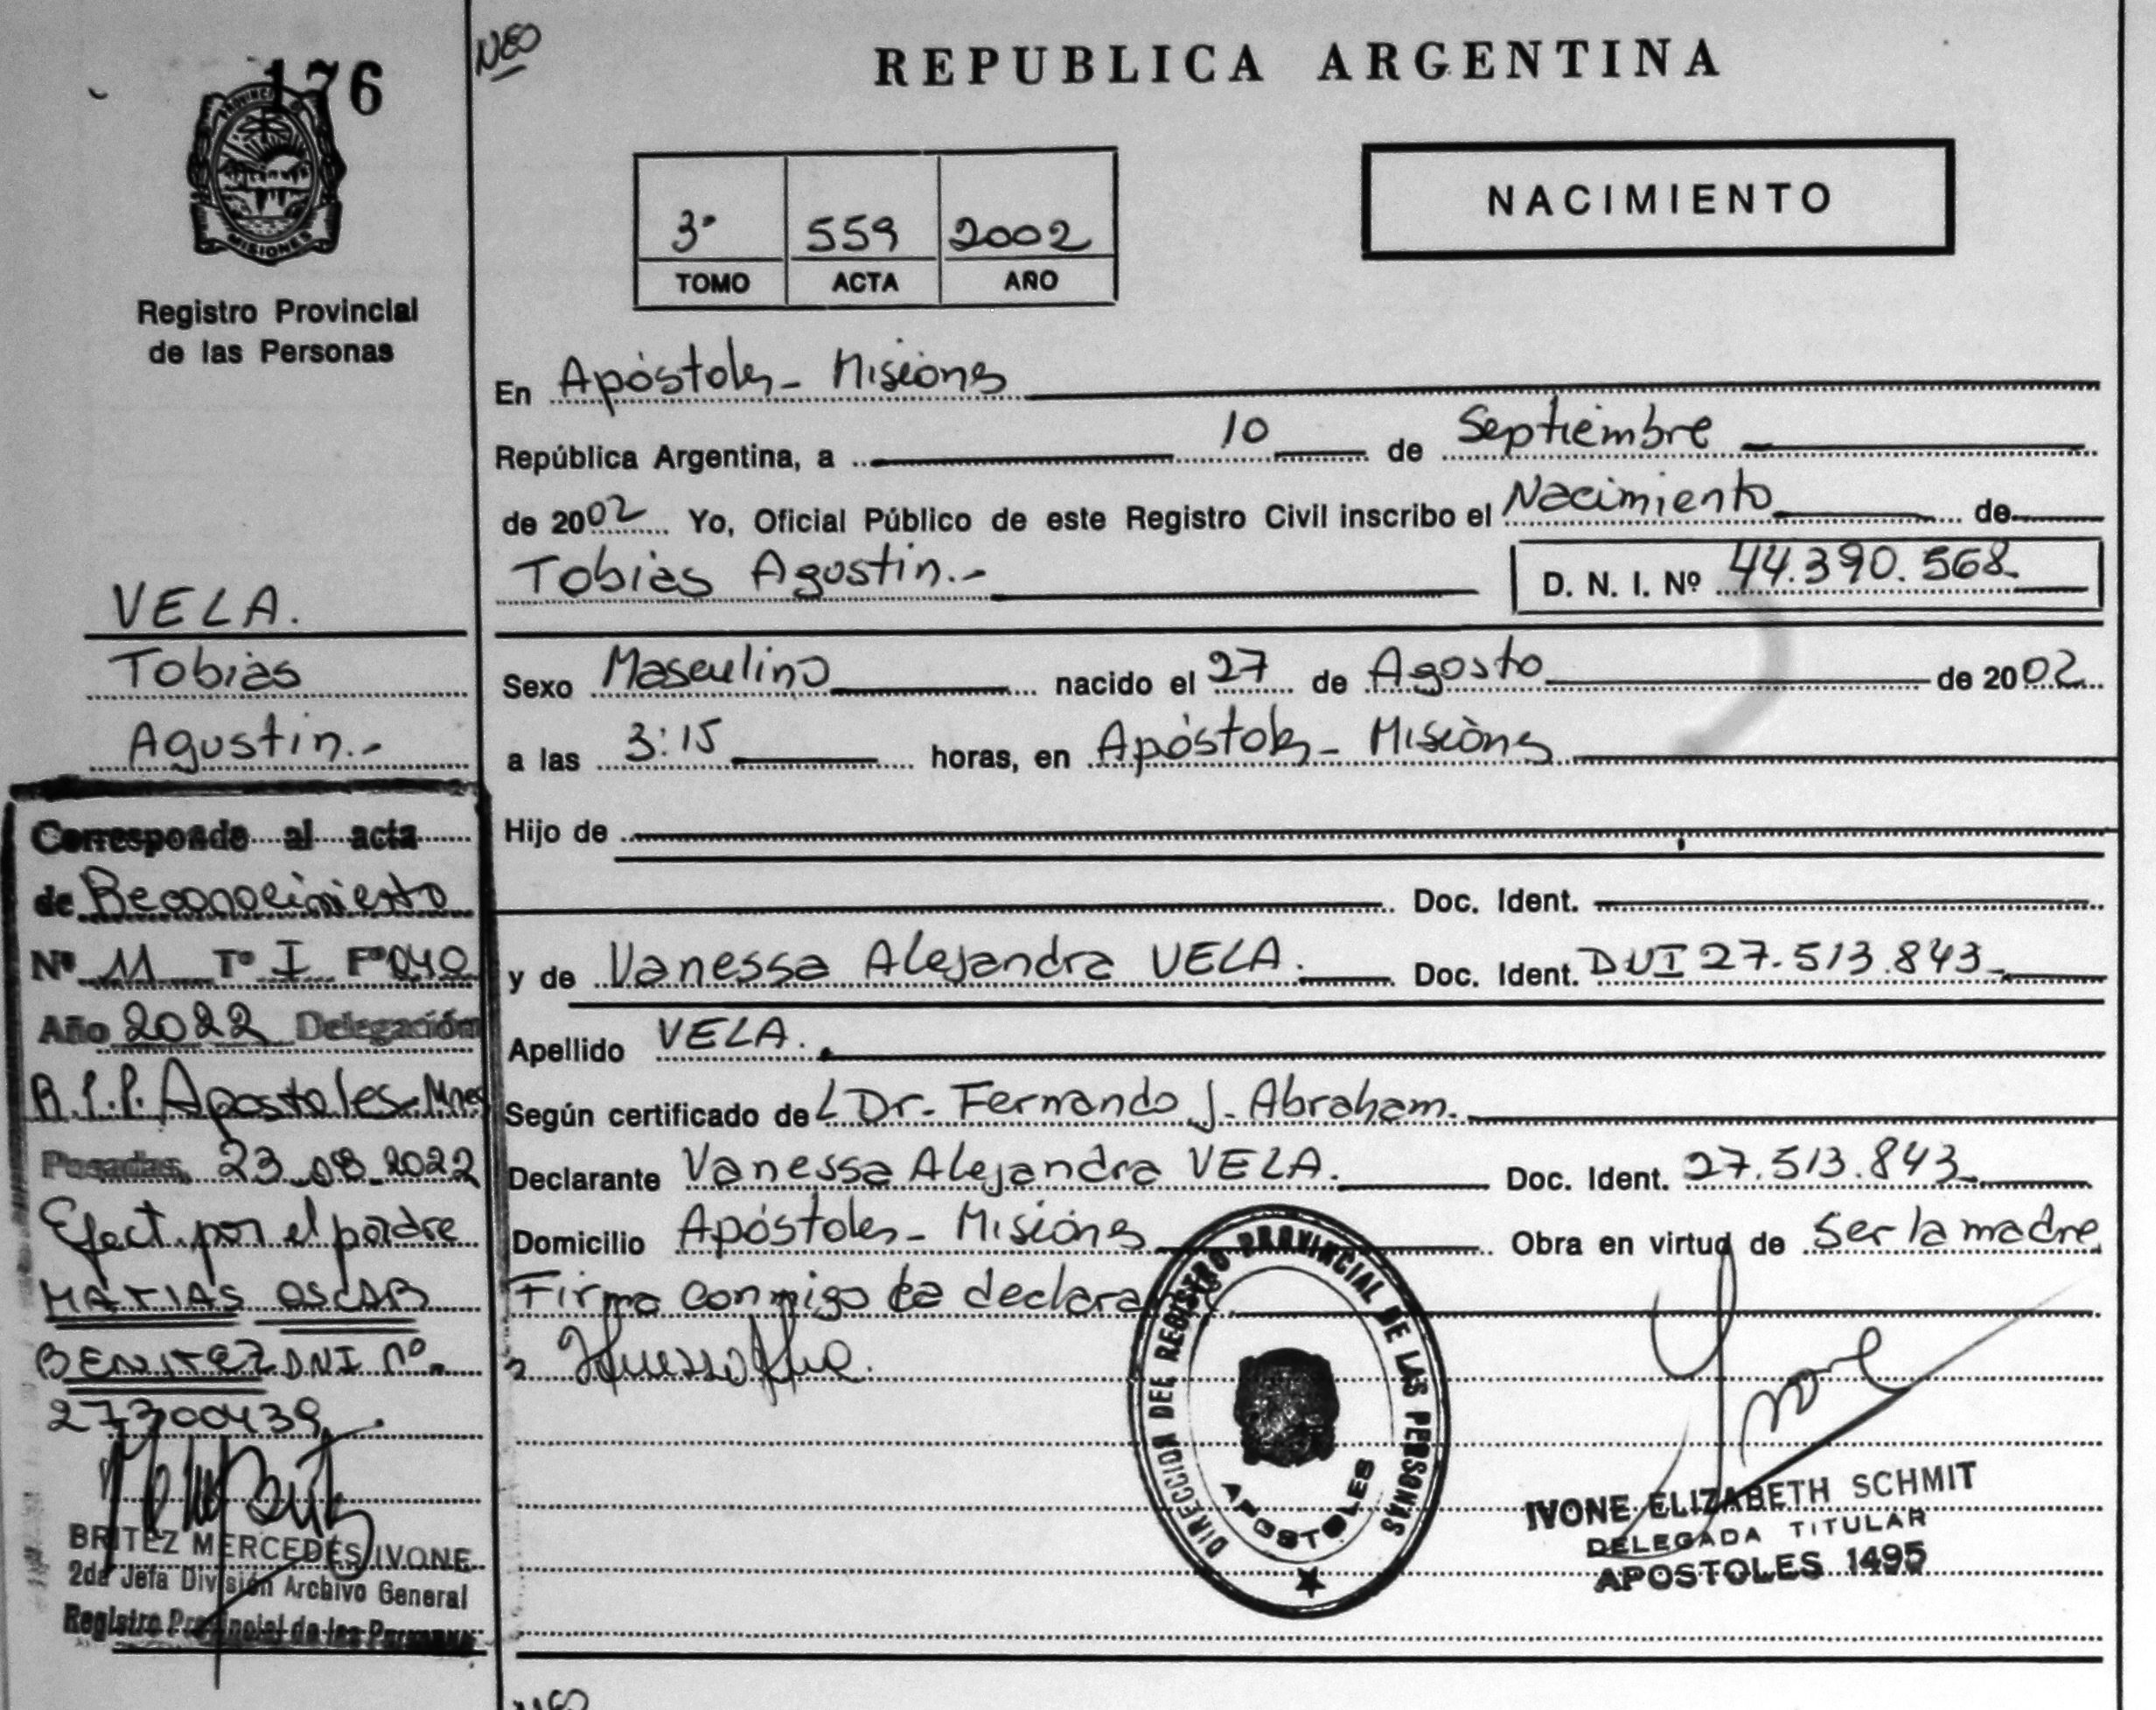 176
PROVINCIA DE
MISIONES
Registro Provincial
de las Personas
VELA.
Tobias
Agustin.-
Corresponde al acta
de Reconocimiento
Nº 11 Tº I Fº 040
Año 2022 Delegación
R.P.P. Apostoles-Mnes
Posadas, 23-08-2022
Efect. por el padre
MATIAS OSCAR
BENITEZ DNI nº
27300439.
BRITEZ MERCEDES IVONE
2da Jefa División Archivo General
Registro Provincial de las Personas
NEO
REPUBLICA ARGENTINA
3º 559 2002
TOMO ACTA AÑO
NACIMIENTO
En Apóstoles - Misiones
República Argentina, a 10 de Septiembre
de 2002 Yo, Oficial Público de este Registro Civil inscribo el Nacimiento de
Tobias Agustin.- D. N. I. Nº 44.390.568
Sexo Masculino nacido el 27 de Agosto de 2002
a las 3:15 horas, en Apóstoles - Misiones
Hijo de
Doc. Ident.
y de Vanessa Alejandra VELA. Doc. Ident. DNI 27.513.843
Apellido VELA.
Según certificado del Dr. Fernando J. Abraham.
Declarante Vanessa Alejandra VELA. Doc. Ident. 27.513.843
Domicilio Apóstoles - Misiones Obra en virtud de ser la madre
Firma conmigo la declara
DIRECCION DEL REGISTRO PROVINCIAL DE LAS PERSONAS
APOSTOLES
IVONE ELIZABETH SCHMIT
DELEGADA TITULAR
APOSTOLES 1495